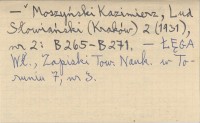 — Moszyński Kazimierz, Lud
Słowiański (Kraków) 2 (1931),
nr 2: B265-B271. — ŁĘGA
Wł., Zapiski Tow. Nauk. w To-
runiu 7, nr 3.